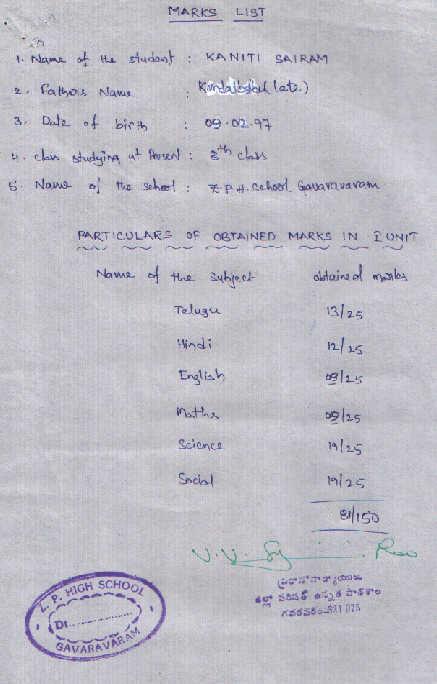 MARKS LIST
1. Name of the student : KANITI SAIRAM
2. Fathers Name : (late.)
3. Date of birth : 09.02.97
4. class studying at Present : 8th class
5. Name of the School : Z.P.H. School. Gavaravaram
PARTICULARS OF OBTAINED MARKS IN I UNIT
Name of the subject obtained marks
Telugu 13/25
Hindi 12/25
English 09/25
Maths 09/25
Science 19/25
Social 19/25
81/150
ప్రధానోపాధ్యాయులు
జిల్లా పరిషత్ ఉన్నత పాఠశాల
Z. P. HIGH SCHOOL
GAVARAVARAM